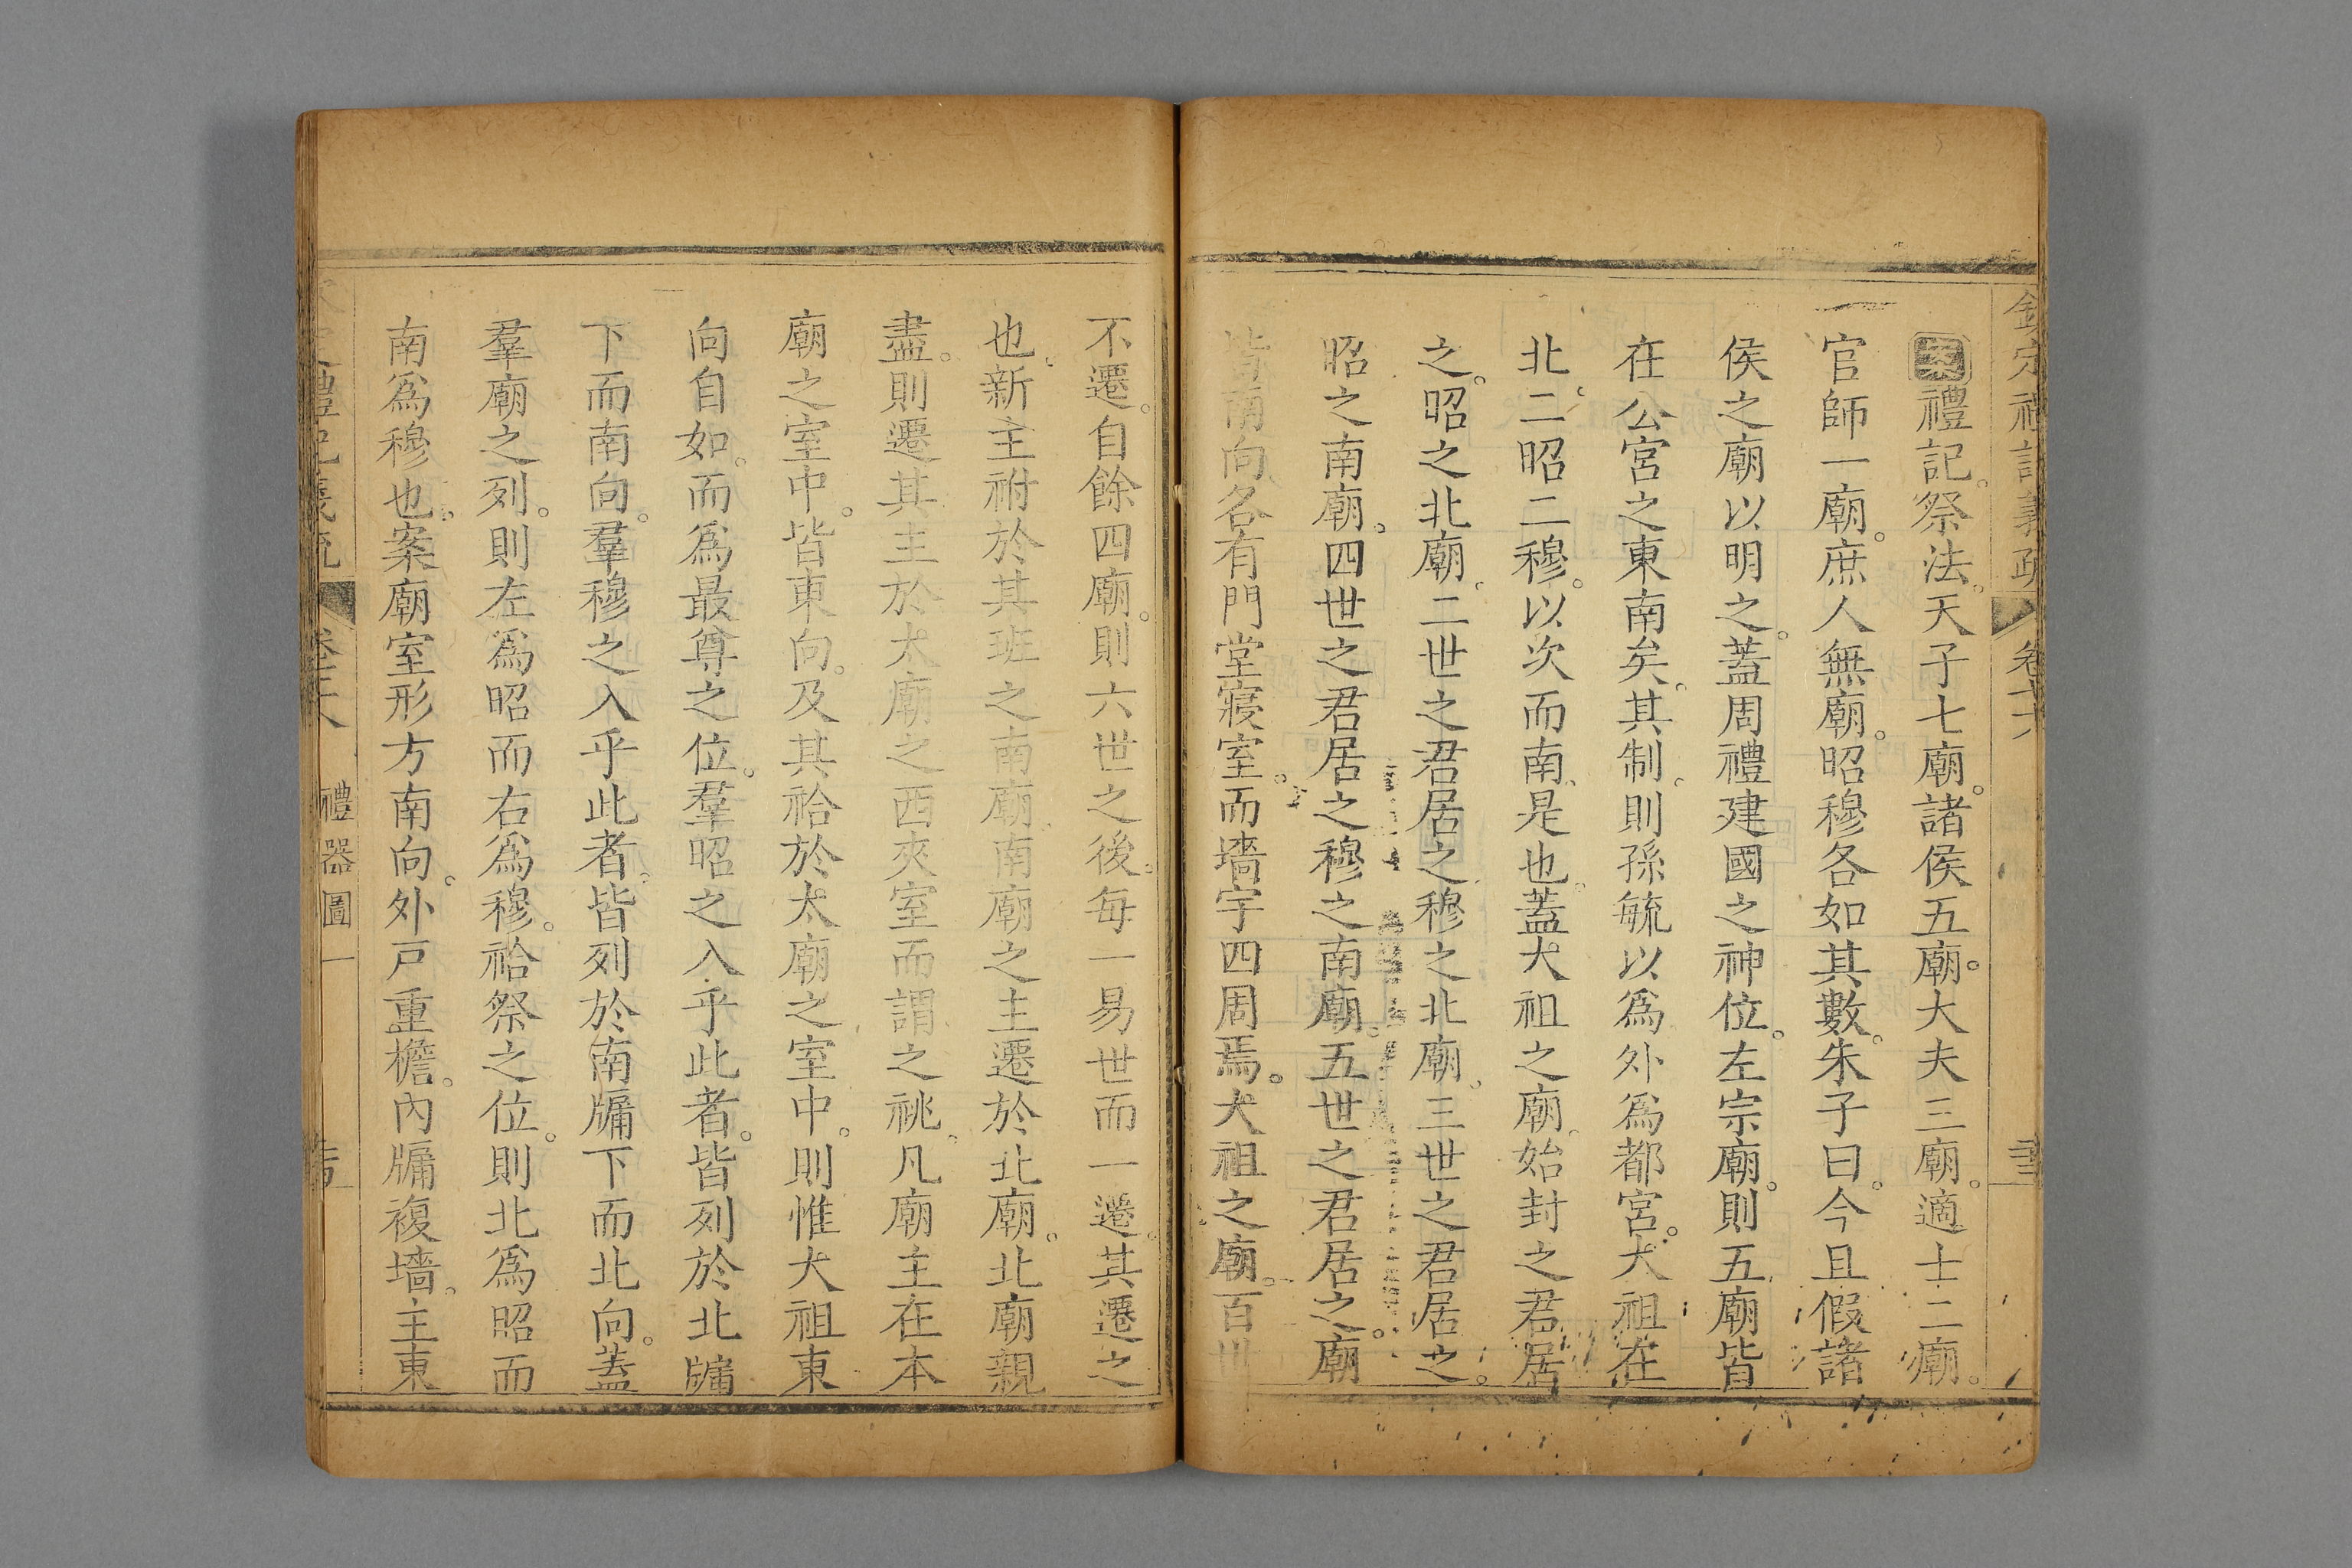 欽定禮記義疏 卷
禮記。祭法。天子七廟。諸侯五廟。大夫三廟。適士二廟。
官師一廟。庶人無廟。昭穆各如其數。朱子曰。今且假諸
侯之廟以明之。蓋周禮建國之神位。左宗廟。則五廟皆
在公宮之東南矣。其制。則孫毓以爲外爲都宮。太祖在
北。二昭二穆。以次而南。是也。蓋太祖之廟。始封之君居
之。昭之北廟。二世之君居之。穆之北廟。三世之君居之。
昭之南廟。四世之君居之。穆之南廟。五世之君居之。廟
皆南向。各有門堂寢室。而墻宇四周焉。太祖之廟。百世
不遷。自餘四廟。則六世之後。每一易世而一遷。其遷之
也。新主祔於其班之南廟。南廟之主遷於北廟。北廟親
盡。則遷其主於太廟之西夾室。而謂之祧。凡廟主在本
廟之室中。皆東向。及其祫於太廟之室中。則惟太祖東
向自如。而爲最尊之位。羣昭之入乎此者。皆列於北牖
下而南向。羣穆之入乎此者。皆列於南牖下而北向。蓋
羣廟之列。則左爲昭而右爲穆。祫祭之位。則北爲昭而
南爲穆也。案廟室形方南向。外戸重檐。內牖複墻。主東
禮記義疏 卷 禮器圖一